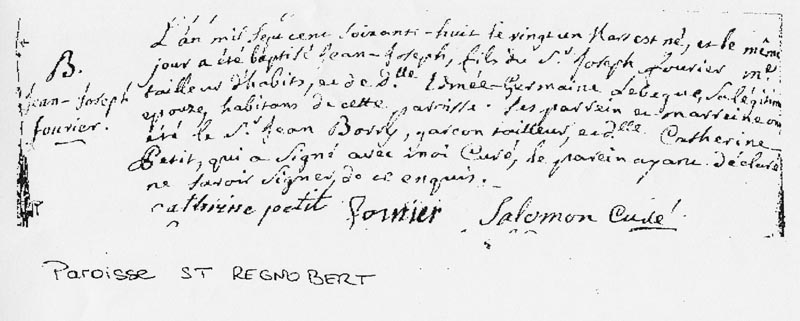 L'an mil sept cent soixante-huit le vingt un Mars est né, et le même
jour a été baptisé Jean-Joseph, fils du Sr Joseph fourier me
tailleur d'habits, et de dlle Edmée-Germaine Lebegue, sa légitime
epouze, habitans de cette paroisse. Ses parrein et marreine ont
été le Sr Jean Borry, garcon tailleur, et dlle Catherine
Petit, qui a signé avec moi Curé, le parein ayant déclaré
ne savoir signer, de ce enquis.
B.
Jean-Joseph
fourier.
catherine petit fourier Salomon Curé
Paroisse ST REGNOBERT